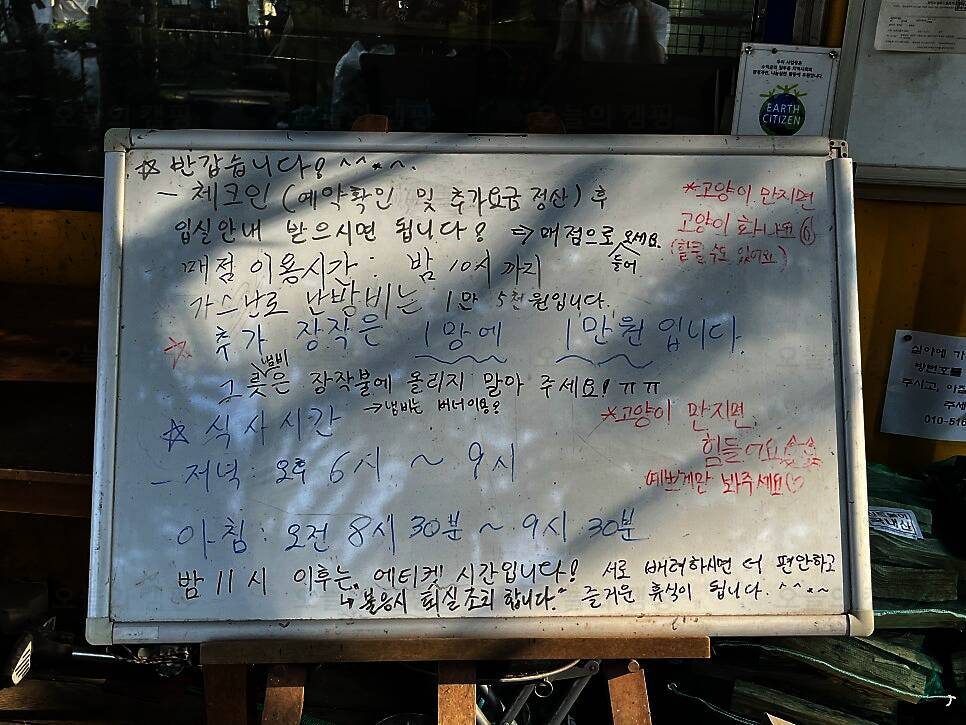 ☆ 반갑습니다! ^^*~.
- 체크인 (예약확인 및 추가요금 정산) 후
입실안내 받으시면 됩니다! ⇒ 매점으로 오세요.
들어
매점 이용시간 : 밤 10시 까지
가스난로 난방비는 1만 5천원입니다.
☆ 추가 장작은 1망에 1만원입니다.
냄비
그릇은 장작불에 올리지 말아 주세요! ㅠㅠ
→ 냄비는 버너이용
☆ 식사시간
- 저녁 : 오후 6시 ~ 9시
아침 : 오전 8시 30분 ~ 9시 30분
밤 11시 이후는 에티켓 시간입니다! 서로 배려하시면 더 편안하고
↳ 불응시 퇴실조치 합니다." 즐거운 휴식이 됩니다. ^^*~
*고양이 만지면
고양이 화나요
(할퀼 수도 있어요)
*고양이 만지면
힘들어요
예쁘게만 봐주세요♡
EARTH
CITIZEN
주시고,
010-516